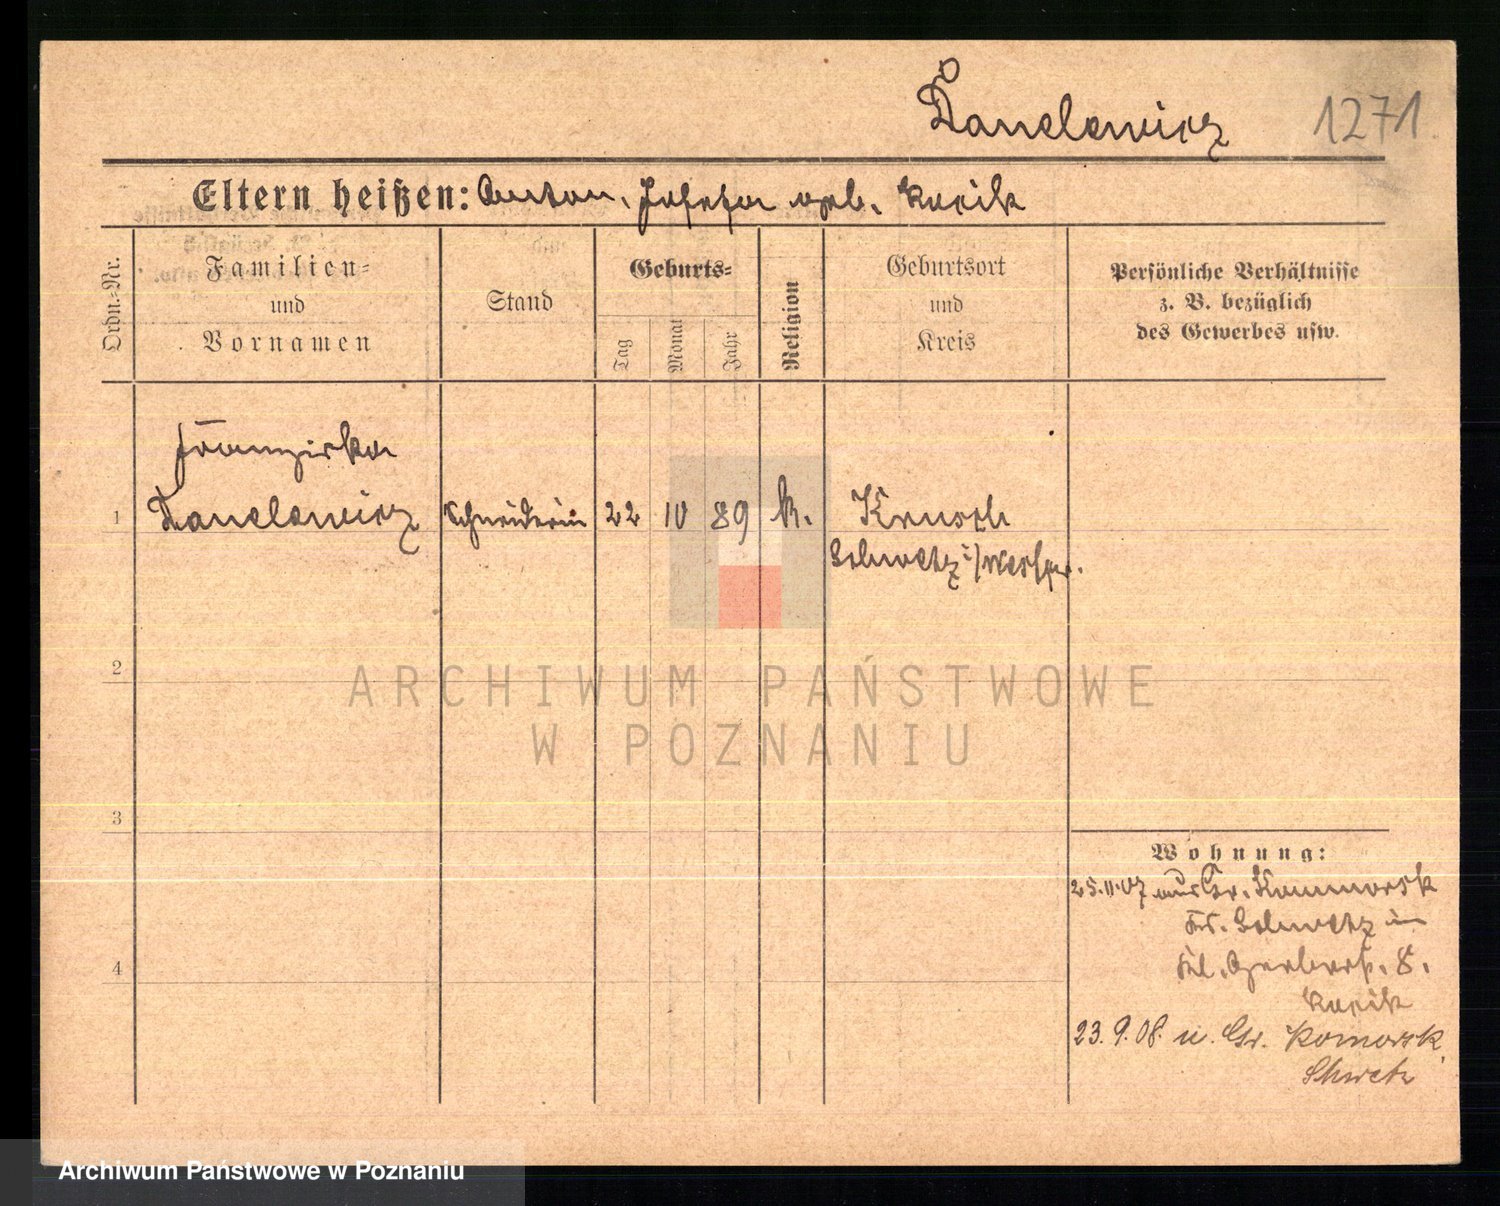 Danelewicz 1271.
Eltern heißen: Anton, Josefa geb. Kucik
Ordn.-Nr.
Familien-
und
Vornamen
Stand
Geburts-
Tag
Monat
Jahr
Religion
Geburtsort
und
Kreis
Persönliche Verhältnisse
z. B. bezüglich
des Gewerbes usw.
Franziska
1 Danelewicz Schneiderin 22 10 89 k.
Schwetz i/Westpr.
2
3
4
Wohnung:
25.11.07 aus Gr. Kommorsk
Kr. Schwetz in
8.
Kucik
23.9.08. n. Gr. Komorsk
Shwetz
ARCHIWUM PAŃSTWOWE
W POZNANIU
Archiwum Państwowe w Poznaniu